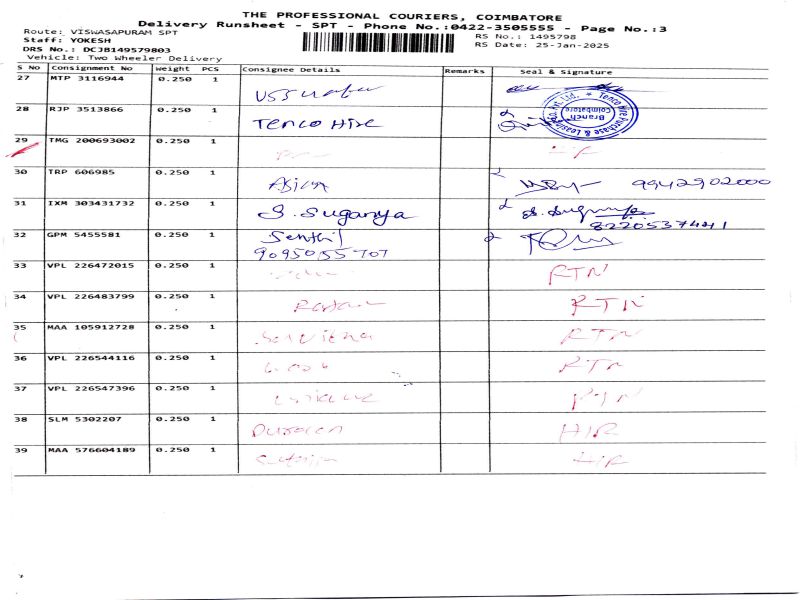 THE PROFESSIONAL COURIERS, COIMBATORE
Delivery Runsheet - SPT - Phone No.:0422-3505555 - Page No.:3
Route: VISWASAPURAM SPT
RS No.: 1495798
Staff: YOKESH
RS Date: 25-Jan-2025
DRS No.: DCJB149579803
Vehicle: Two Wheeler Delivery
S No Consignment No Weight PCS Consignee Details Remarks Seal & Signature
27 MTP 3116944 0.250 1
28 RJP 3513866 0.250 1 Tenco Hire
Tenco Hire Purchase & Leasing Co. Pvt. Ltd. * Branch Coimbatore
29 TMG 200693002 0.250 1
30 TRP 606985 0.250 1 9942902000
31 IXM 303431732 0.250 1 S. Suganya
8220537441
32 GPM 5455581 0.250 1 Senthil
9095055707
33 VPL 226472015 0.250 1 RTN
34 VPL 226483799 0.250 1 RTN
35 MAA 105912728 0.250 1 RTN
36 VPL 226544116 0.250 1 RTN
37 VPL 226547396 0.250 1 RTN
38 SLM 5302207 0.250 1 HIR
39 MAA 576604189 0.250 1